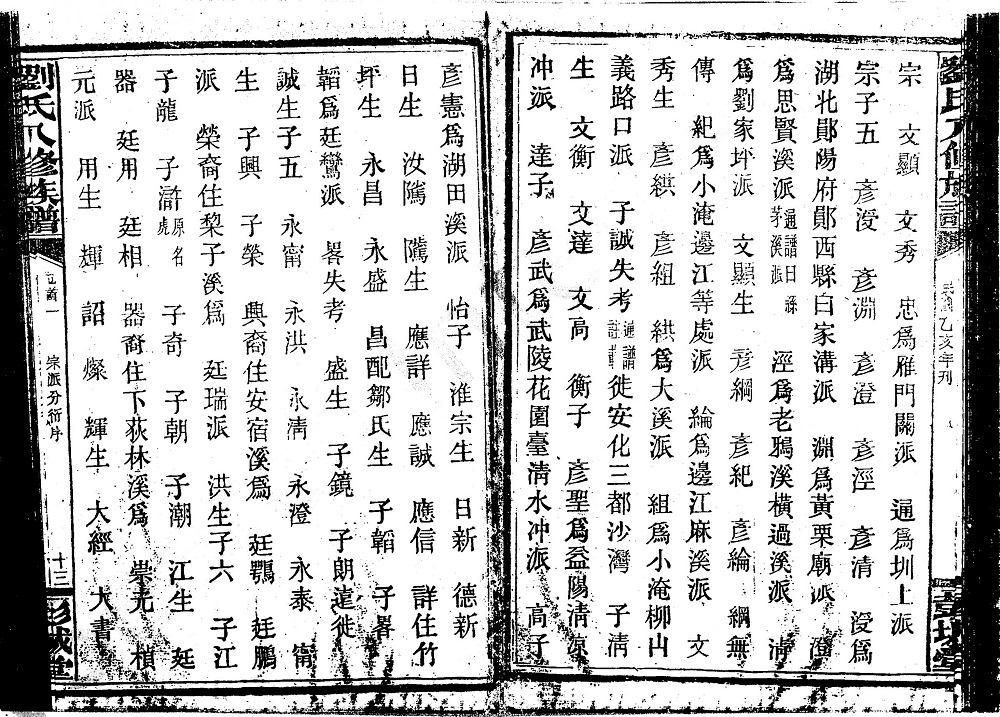 宗 文顯 文秀 忠爲雁門關派 通爲圳上派
宗子五 彥浸 彥淵 彥澄 彥涇 彥清 浸爲
湖北鄖陽府鄖西縣白家溝派 淵爲黃栗廟派 澄
爲思賢溪派 通譜曰 茅溪派 涇爲老鴉溪橫過溪派 清
爲劉家坪派 文顯生 彥綱 彥紀 彥綸 綱無
傳 紀爲小淹邊江等處派 綸爲邊江麻溪派 文
秀生 彥緽 彥組 緽爲大溪派 組爲小淹柳山
義路口派 子誠失考 徙安化三都沙灣 子清
生 文衡 文達 文高 衡子 彥聖爲益陽清凉
冲派 達子 彥武爲武陵花園臺清水冲派 高子
乙亥年刊
彥憲爲湖田溪派 怡子 淮宗生 日新 德新
日生 汝隲 隲生 應詳 應誠 應信 詳住竹
坪生 永昌 永盛 昌配鄒氏生 子韜 子畧
韜爲廷鸞派 畧失考 盛生 子鏡 子朗遠徙
誠生子五 永甯 永洪 永淸 永澄 永泰 甯
生 子興 子榮 興裔住安宿溪爲 廷鶚 廷鵬
派 榮裔住黎子溪爲 廷瑞派 洪生子六 子江
子龍 子滸 原名虎 子奇 子朝 子潮 江生 廷
器 廷用 廷相 器裔住下荻林溪爲 崇尤 楨
元派 用生 輝 詔 燦 輝生 大經 大書
劉氏八修族譜 卷首一 宗派分衍序 十三 彭城堂